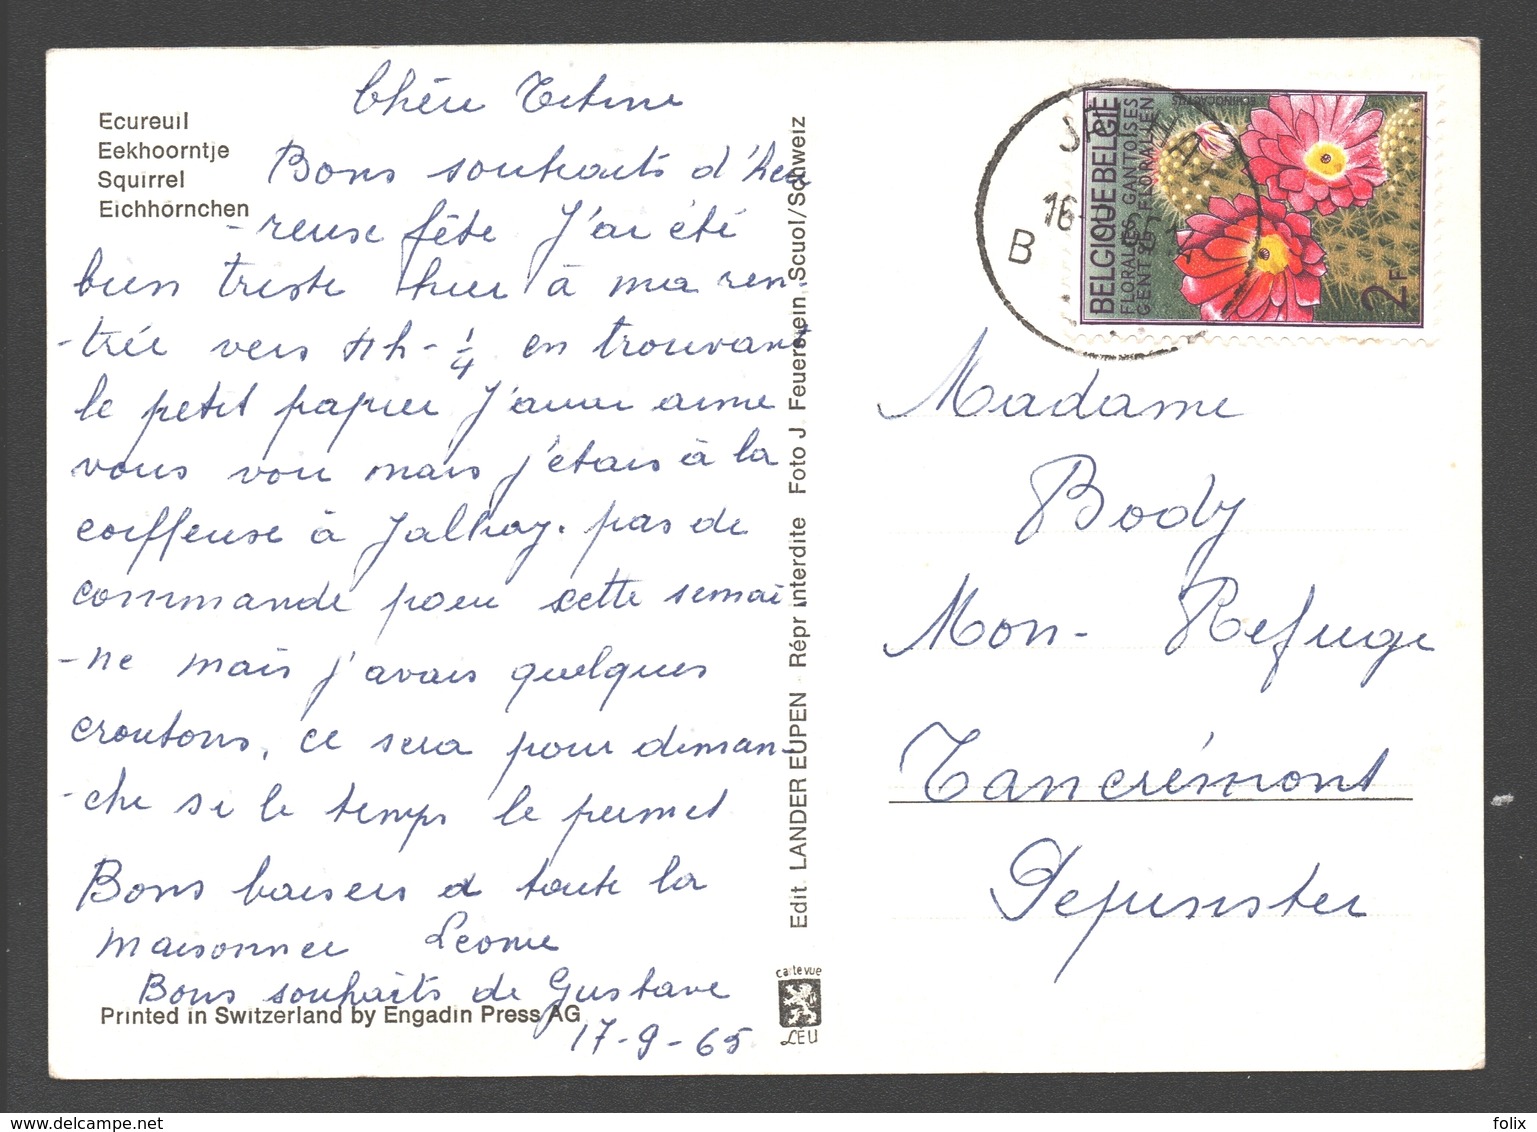 Ecureuil
Eekhoorntje
Squirrel
Eichhörnchen
Chère Titine
Bons souhaits d'heu
-reuse fête J'ai été
bien triste hier à ma ren-
-trée vers 4h-1/4 en trouvant
le petit papier J'aurai aimé
vous voir mais j'étais à la
coiffeuse à Jalhay. pas de
commande pour cette semai
-ne mais j'avais quelques
croutons, ce sera pour diman-
-che si le temps le permet
Bons baisers à toute la
maisonnée Léonie
Bons souhaits de Gustave
17-9-65
Printed in Switzerland by Engadin Press AG
Edit. LANDER EUPEN - Répr interdite Foto J Feuerstein Scuol/Schweiz
carte vue
LEU
BELGIQUE BELGIE
FLORALIES GANTOISES
GENTSE FLORALIËN
ECHINOCACTUS
2F
B
16-
Madame
Body
Mon-Refuge
Tancrémont
Pepinster
www.delcampe.net
folix